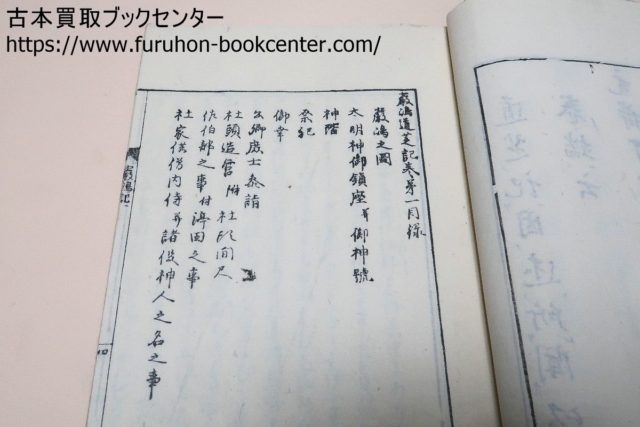 古本買取ブックセンター
https://www.furuhon-bookcenter.com/
嚴嶋道芝記卷第一目録
嚴嶋之圖
大明神御鎮座并御神號
神階
祭祀
御幸
公卿武士参詣
社頭造営附社頭間尺
佐伯部之事付濟田之事
社家供僧内侍并諸役神人之名之事
嚴嶋記
四